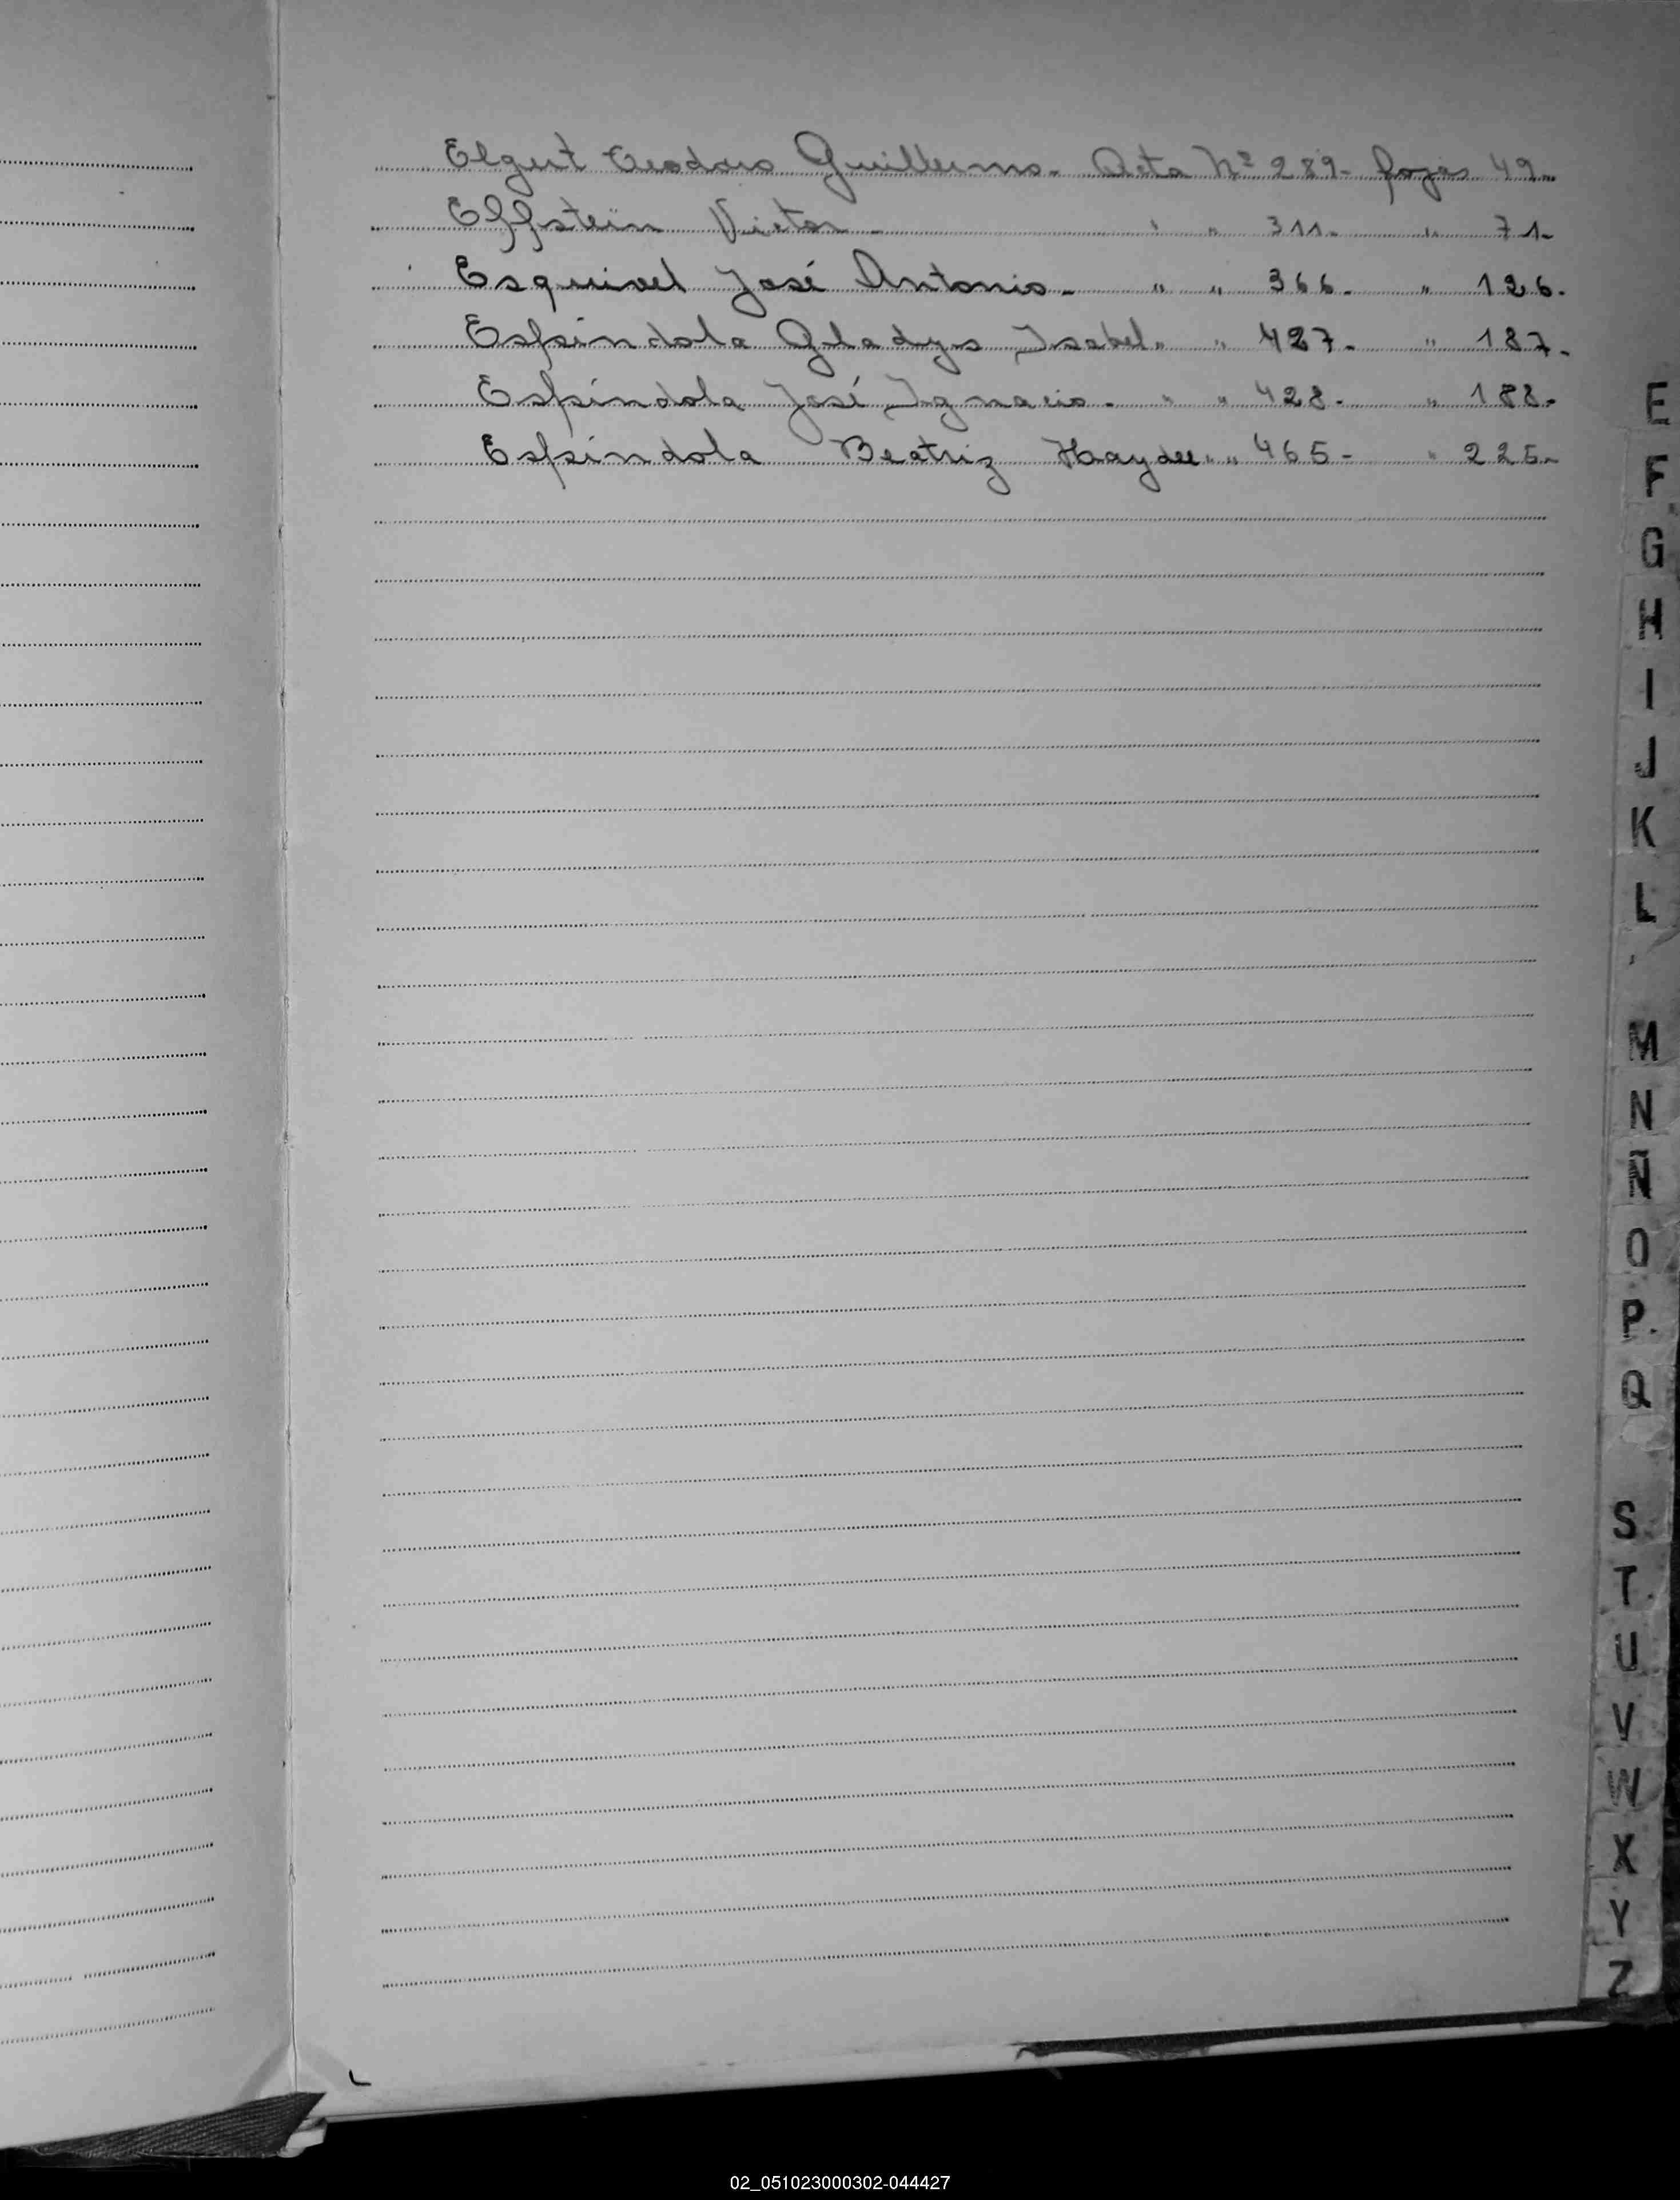 Elgert Teodoro Guillermo. Acta Nº 289- fojas 49-
Effstein Victor - " " 311- " 71-
Esquivel José Antonio- " " 366- " 126-
Espíndola Gladys Isabel " " 427- " 187-
Espíndola José Ignacio- " " 428- " 188-
Espíndola Beatriz Haydee " " 465- " 225-
E
F
G
H
I
J
K
L
M
N
Ñ
O
P
Q
S
T
U
V
W
X
Y
Z
02_051023000302-044427